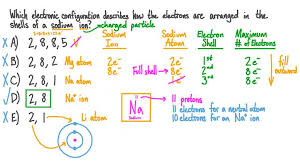 Which electronic configuration describes how the electrons are arranged in the
shells of a sodium ion? charged particle
X A) 2, 8, 8, 5
X B) 2, 8, 2 Mg atom
X C) 2, 8, 1 Na atom
✓ D) 2, 8 Na⁺ ion
X E) 2, 1 Li atom
Sodium Ion
2e⁻
8e⁻
Full shell
Sodium Atom
2e⁻
8e⁻
Electron Shell
1st
2nd
3rd
Maximum # of Electrons
2e⁻
8e⁻
8e⁻
fill outward
11
Na
Sodium
11 protons
11 electrons for a neutral atom
10 electrons for an Na⁺ ion